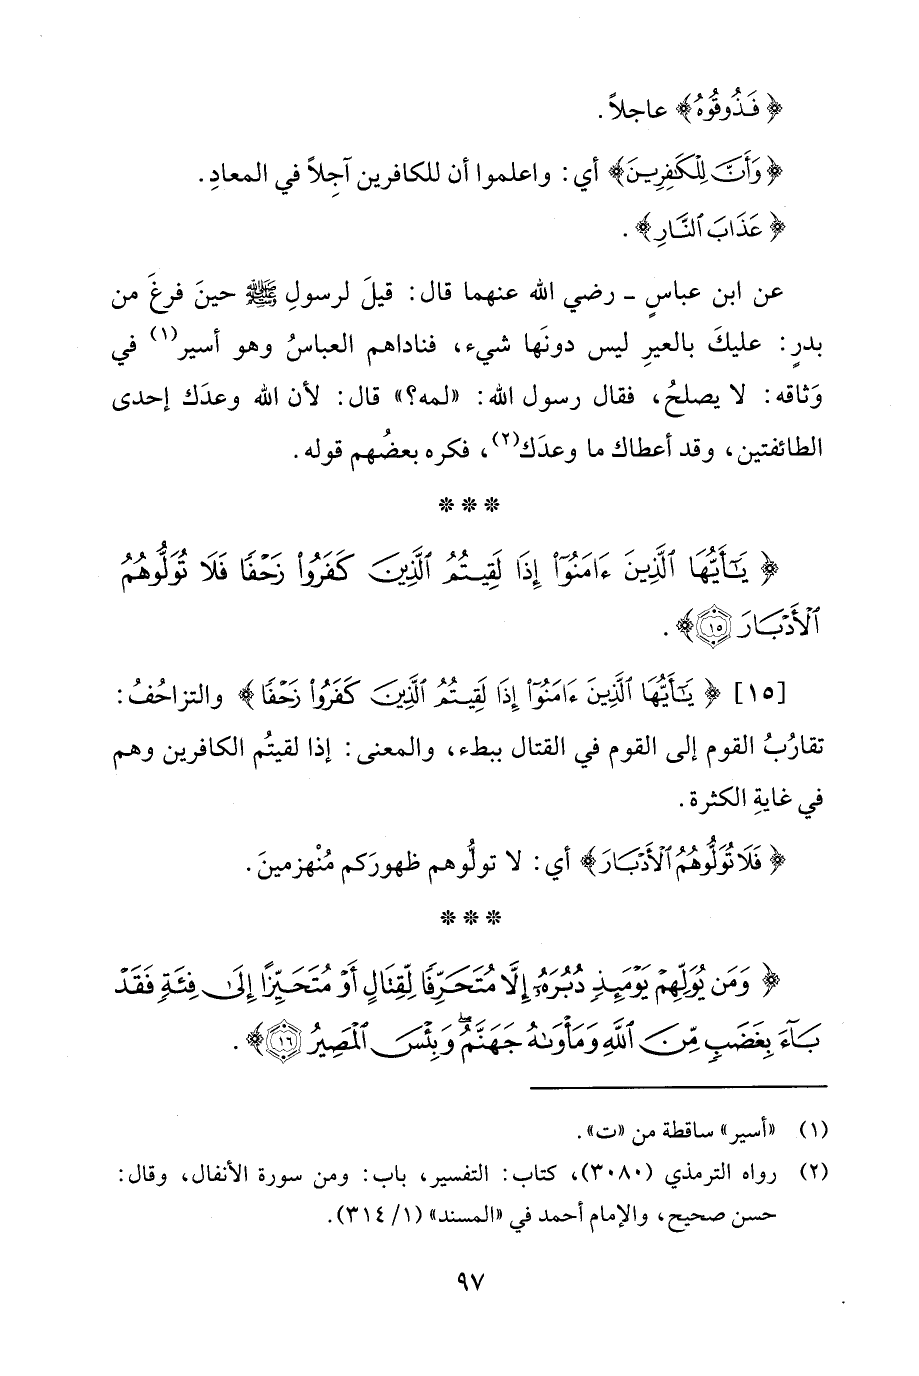 ﴿ فَذُوقُوهُ﴾ عاجلاً .
﴿ وَأَنَّ لِلْكَٰفِرِينَ﴾ أي : واعلموا أن للكافرين آجِلاً في المعادِ .
﴿ عَذَابَ ٱلنَّارِ﴾ .
عن ابن عباسٍ - رضي الله عنهما قال : قيلَ لرسولِ ﷺ حينَ فرغَ من
بدرٍ : عليكَ بالعيرِ ليس دونَها شيء، فناداهم العباسُ وهو أسير(١) في
وَثاقه : لا يصلحُ، فقال رسول الله : «لمه؟» قال : لأن الله وعدَك إحدى
الطائفتين، وقد أعطاك ما وعدَك(٢)، فكره بعضُهم قوله .
* * *
﴿ يَٰٓأَيُّهَا ٱلَّذِينَ ءَامَنُوٓا۟ إِذَا لَقِيتُمُ ٱلَّذِينَ كَفَرُوا۟ زَحْفًا فَلَا تُوَلُّوهُمُ
ٱلْأَدْبَارَ ۝١٥﴾ .
[١٥] ﴿ يَٰٓأَيُّهَا ٱلَّذِينَ ءَامَنُوٓا۟ إِذَا لَقِيتُمُ ٱلَّذِينَ كَفَرُوا۟ زَحْفًا﴾ والتزاحُفُ :
تقارُبُ القوم إلى القوم في القتال ببطء، والمعنى : إذا لقيتُم الكافرين وهم
في غايةِ الكثرة .
﴿ فَلَا تُوَلُّوهُمُ ٱلْأَدْبَارَ﴾ أي : لا تولُّوهم ظهورَكم مُنْهزمينَ .
* * *
﴿ وَمَن يُوَلِّهِمْ يَوْمَئِذٍ دُبُرَهُۥٓ إِلَّا مُتَحَرِّفًا لِّقِتَالٍ أَوْ مُتَحَيِّزًا إِلَىٰ فِئَةٍ فَقَدْ
بَآءَ بِغَضَبٍ مِّنَ ٱللَّهِ وَمَأْوَىٰهُ جَهَنَّمُ ۖ وَبِئْسَ ٱلْمَصِيرُ ۝١٦﴾ .
(١) «أسير» ساقطة من «ت» .
(٢) رواه الترمذي (٣٠٨٠)، كتاب : التفسير، باب : ومن سورة الأنفال، وقال :
حسن صحيح، والإمام أحمد في «المسند» (١/ ٣١٤) .
٩٧